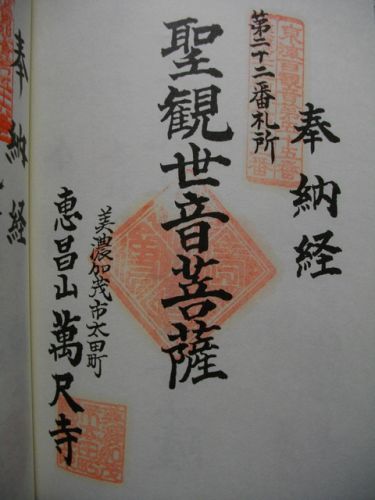 奉納経
第二十二番札所
聖観世音菩薩
美濃加茂市太田町
恵昌山萬尺寺
奉納経